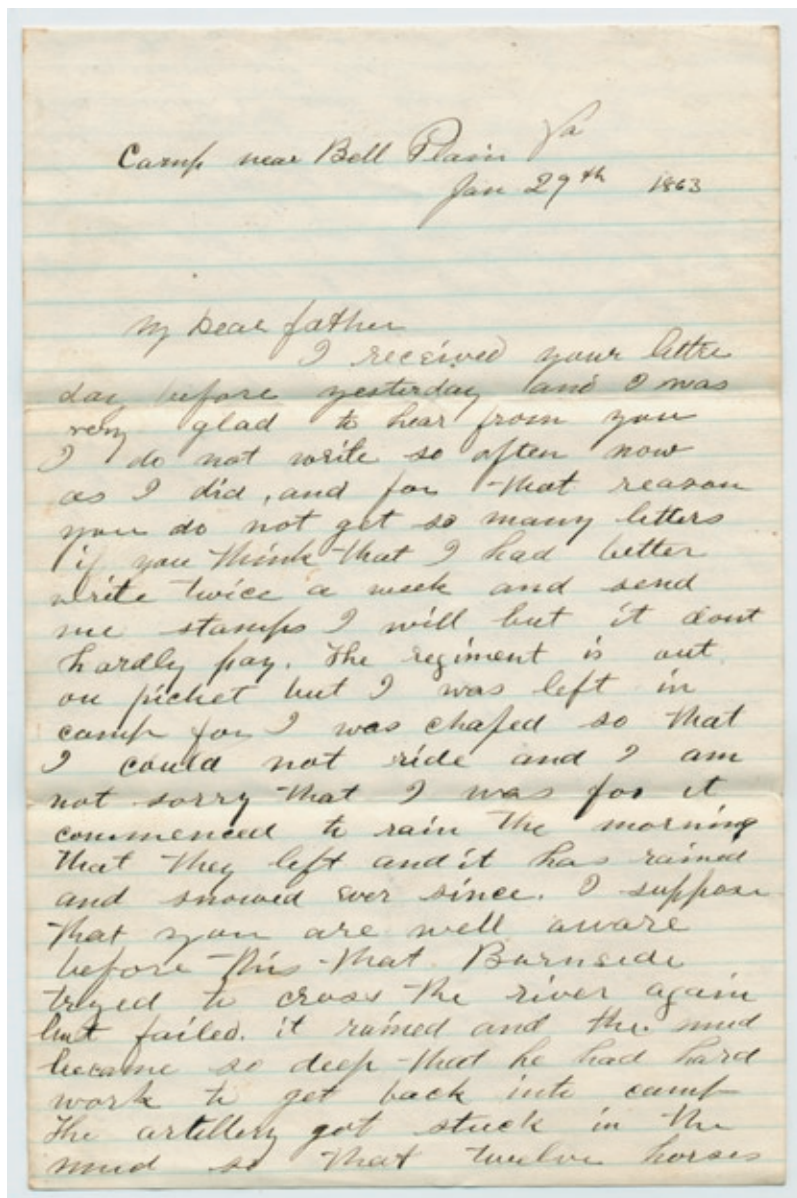 Camp near Bell Plain Va
Jan 29th 1863
My Dear father
I received your lettre
day before yesterday and I was
very glad to hear from you
I do not write so often now
as I did, and for that reason
you do not get so many letters
if you think that I had better
write twice a week and send
me stamps I will but it dont
hardly pay. The regiment is out
on picket but I was left in
camp for I was chafed so that
I could not ride and I am
not sorry that I was for it
commenced to rain the morning
that they left and it has rained
and snowed ever since. I suppose
that you are well aware
before this that Burnside
tryed to cross the river again
but failed. it rained and the mud
became so deep that he had hard
work to get back into camp
the artillery got stuck in the
mud so that twelve horses